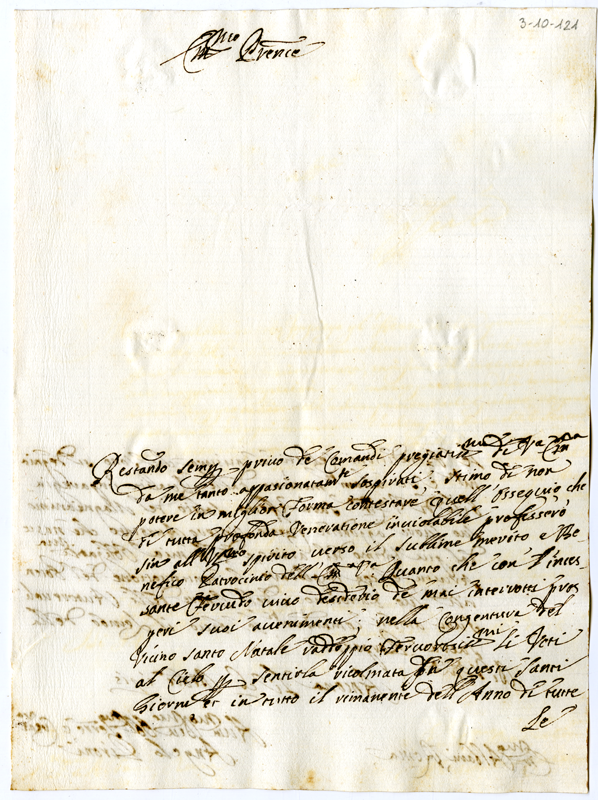 3-10-121
Em.mo Prence
Restando semp. privo de Comandi pregiatis.mi di Va Em.za
da me tanto appasionatam.te sospirati: stimo di non
potere in miglior forma contestare quell'Ossequio che
di tutta profonda Veneratione inviolabile professerò
sin all'ult.mo spirito verso il sublime merito e Be-
nefico Patrocinio dell'Em.za Va Quanto che con l'inces-
sante fervido vivo desiderio de mai interrotti pros-
peri suoi avenimenti: nella Congentura del
Vicino santo Natale radoppio fervorosis.mi li Voti
al Cielo p. sentirla ricolmata in questi santi
Giorni et in tutto il rimanente dell'Anno di tutte
Le